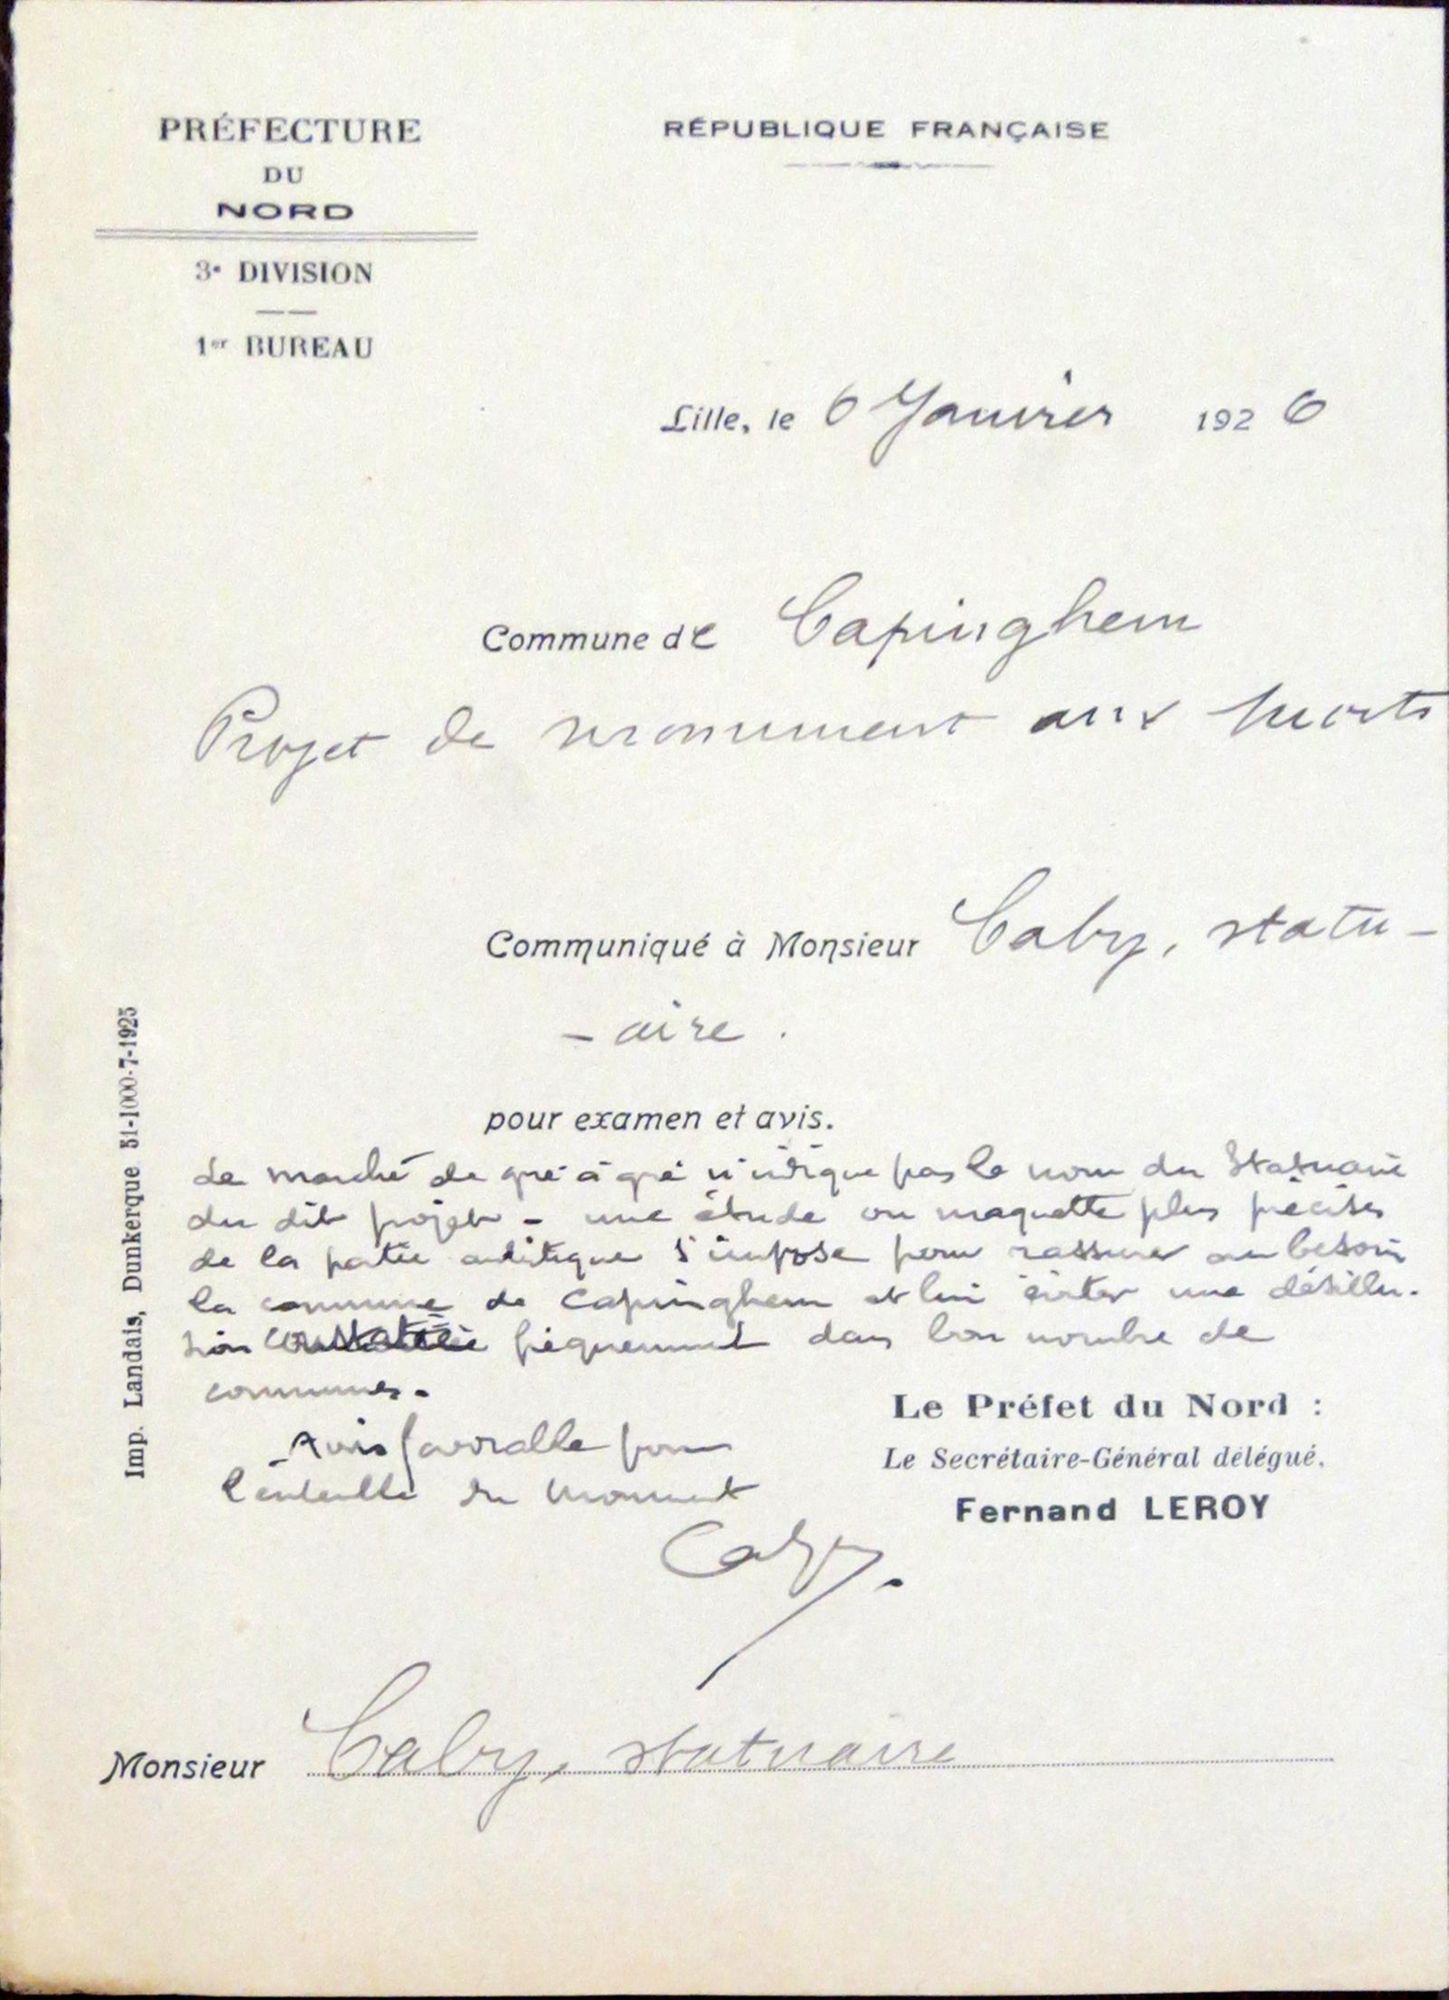 PRÉFECTURE
DU
NORD
3e DIVISION
1er BUREAU
RÉPUBLIQUE FRANÇAISE
Lille, le 6 Janvier 1926
Commune de Capinghem
Projet de monument aux morts
Communiqué à Monsieur Caby, statu-
- aire.
pour examen et avis.
Le marché de gré à gré n'indique pas le nom du Statuaire
du dit projet - une étude ou maquette plus précise
de la partie artistique s'impose pour rassurer au besoin
la commune de Capinghem et lui éviter une désillu-
sion constatée fréquemment dans bon nombre de
communes.
Avis favorable pour
l'ensemble du Monument
Caby.
Le Préfet du Nord :
Le Secrétaire-Général délégué,
Fernand LEROY
Monsieur Caby, statuaire
Imp. Landais, Dunkerque 51-1000-7-1925